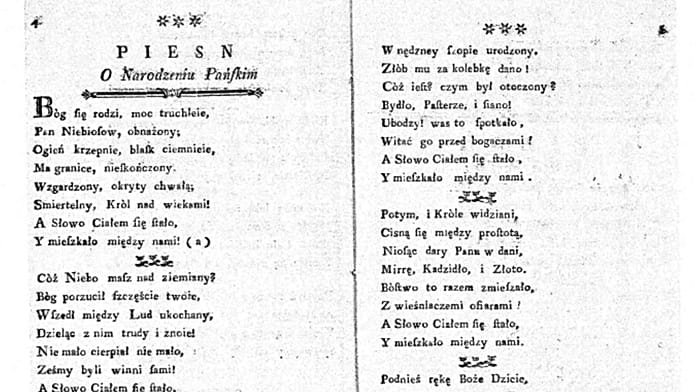 4
PIESN
O Narodzeniu Pańſkim
Bòg się rodzi, moc truchleie,
Pan Niebioſow, obnażony;
Ogień krzepnie, blaſk ciemnieie,
Ma granice, nieſkończony.
Wzgardzony, okryty chwałą;
Smiertelny, Kròl nad wiekami!
A Słowo Ciałem ſię ſtało,
Y mieſzkało między nami! (a)
Còż Niebo maſz nad ziemiany?
Bòg porzucił ſzczęście twóie,
Wſzedł między Lud ukochany,
Dzieląc z nim trudy i znoie!
Nie mało cierpiał nie mało,
Żeśmy byli winni ſami!
A Słowo Ciałem ſię ſtało,
W nędzney ſzopie urodzony,
Złòb mu za kolebkę dano!
Còż ieſt? czym był otoczony?
Bydło, Paſterze, i ſiano!
Ubodzy! was to ſpotkało,
Witać go przed bogaczami!
A Słowo Ciałem ſię ſtało,
Y mieſzkało między nami.
Potym, i Kròle widziani,
Ciſną ſię między proſtotą,
Nioſąc dary Panu w dani,
Mirrę, Kadzidło, i Złoto.
Bòſtwo to razem zmieſzało,
Z wieśniaczemi ofiarami!
A Słowo Ciałem ſię ſtało,
Y mieſzkało między nami.
Podnieś rękę Boże Dziecie,